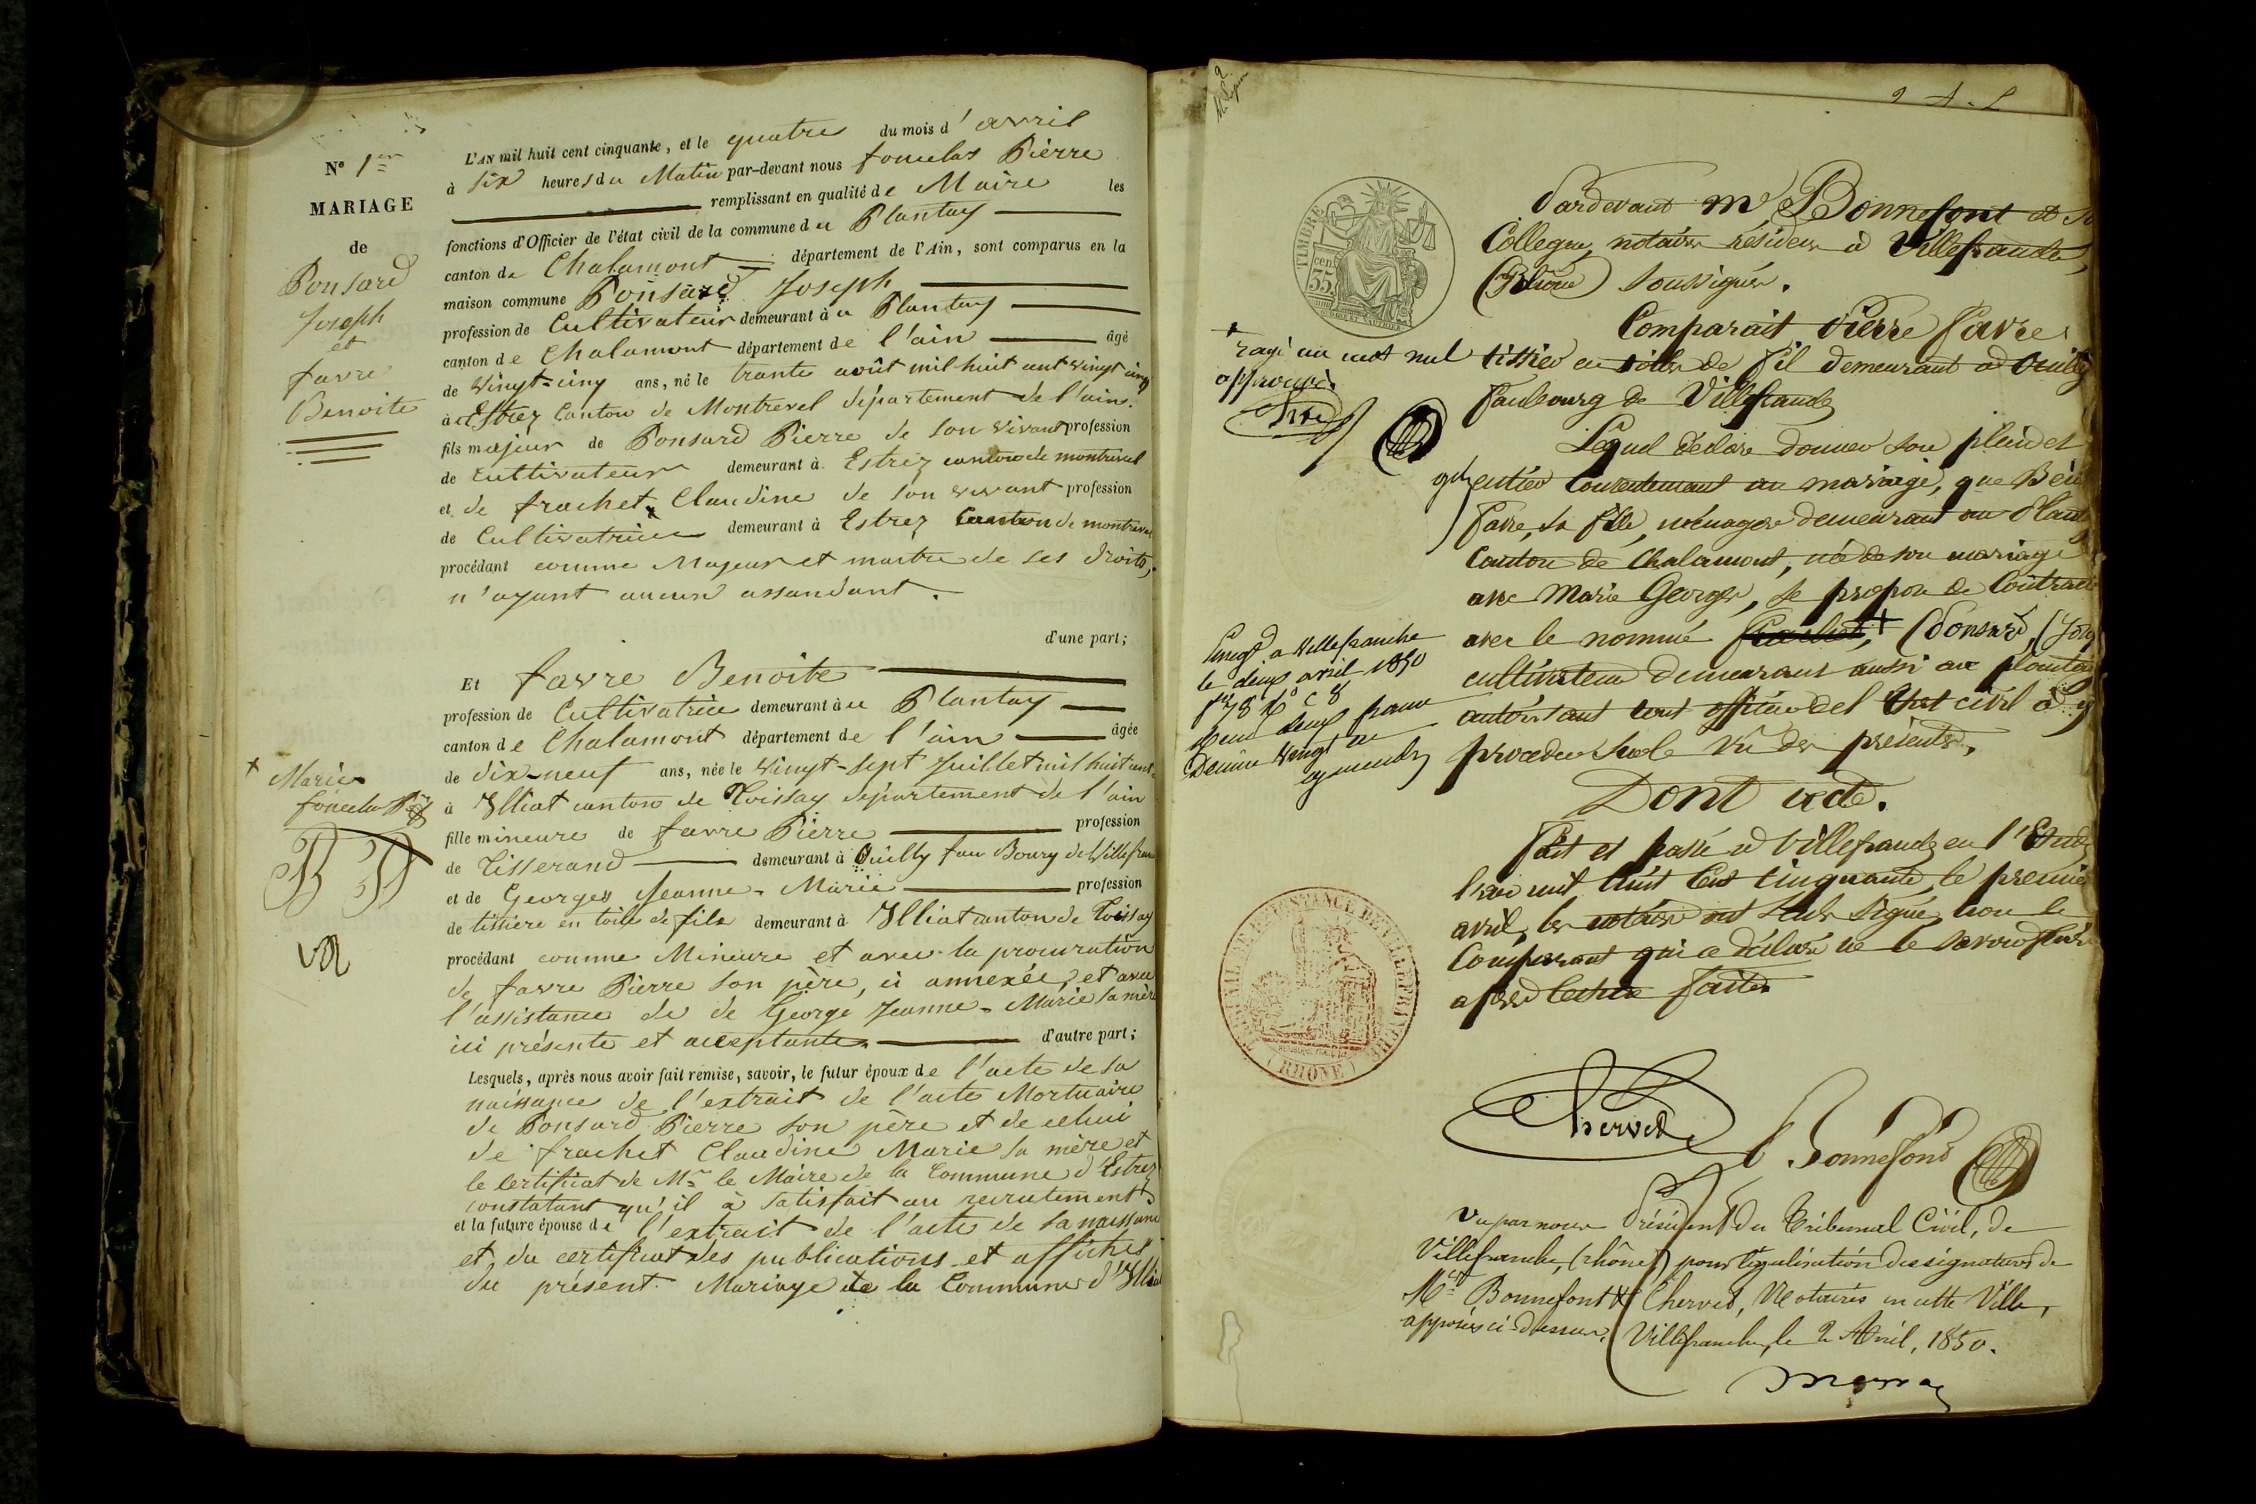 N° 1er
MARIAGE
de
Ponsard
Joseph
et
favre
Benoite
L'AN mil huit cent cinquante, et le quatre du mois d'avril
à six heures du Matin par-devant nous fouclas Pierre
remplissant en qualité de Maire les
fonctions d'Officier de l'état civil de la commune du Plantay
canton de Chalamont département de l'Ain, sont comparus en la
maison commune Ponsard Joseph
profession de Cultivateur demeurant à u Plantay
canton de Chalamont département de l'ain âgé
de vingt=cinq ans, né le trante août mil huit cent vingt cinq
à Estrez Canton de Montrevel département de l'ain.
fils majeur de Ponsard Pierre de son vivant profession
de cultivateur demeurant à Estrez canton de montrevel
et de frachet Claudine de son vivant profession
de Cultivatrice demeurant à Estrez Canton de montrevel
procédant comme Majeur et maitre de ses droits,
n'ayant aucun assandant.
d'une part;
Et favre Benoite
profession de Cultivatrice demeurant à u Plantay
canton de Chalamont département de l'ain âgée
de dix-neuf ans, née le vingt-sept Juillet mil huit cent
à Illiat canton de Toissay département de l'ain
fille mineure de favre Pierre profession
de Tisserand demeurant à Ouilly fau Bourg de Villefran
et de Georges Jeanne-Marie profession
de tissière en toile de fils demeurant à Illiat canton de Toissay
procédant comme Mineure et avec la procuration
de favre Pierre son père, ci annexée, et avec
l'assistance de de George Jeanne-Marie sa mère
ici présente et acceptante. d'autre part;
Lesquels, après nous avoir fait remise, savoir, le futur époux de l'acte de sa
naissance de l'extrait de l'acte Mortuaire
de Ponsard Pierre son père et de celui
de frachet Claudine Marie sa mère et
le certificat de Mr le Maire de la Commune d'Estrez
constatant qu'il à satisfait au recrutement
et la future épouse de l'extrait de l'acte de sa naissance
et du certificat des publications et affiches
du présent Mariage de la Commune d'Illiat
+ Marie
Pardevant Me Bonnefont et so
Collegue, notaires résidens à Villefranche,
(Rhône) soussignés.
Comparait Pierre favre
tissier en toiles de fil demeurant à Ouilly
faubourg de Villefranche
Lequel déclare donner son plein et
entier consentement au mariage, que Ben
favre, sa fille, ménagère demeurant au Plant
Canton de Chalamont, née de son mariage
avec Marie Georges, se propose de Contracter
avec le nommé + Ponsard, (Jos
cultivateur demeurant aussi au plantay
autorisant tout officier de l'Etat civil à y
proceder sur le vu des présentes,
Dont acte.
Fait et passé à Villefranche en l'Etude
l'an mil huit Cent Cinquante, le premier
avril, les notaires ont seuls signé, non le
Comparant qui a déclaré ne le savoir faire
après lecture faite.
+ rayé un mot nul
approuvé
Enregé à Villefranche
le deux avril 1850
reçu deux francs
Décime vingt c
Chervet
Bonnefond
Vu par nous Président du Tribunal Civil, de
Villefranche, (rhône) pour légalisation des signatures de
Mes Bonnefont & Chervet, Notaires en cette Ville,
apposées ci-dessus. Villefranche, le 2 Avril, 1850.
TIMBRE
35
cen
TRIBUNAL DE 1ERE INSTANCE DE VILLEFRANCHE
(RHÔNE)